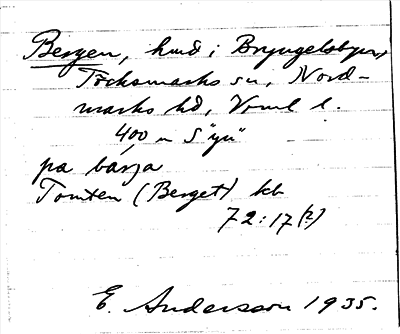 Bergen, hmd i Bryngelsbyn,
Töcksmarks sn, Nord-
marks hd, Vrml l.
400 m S "yn"
pa bärja
Tomten (Berget) kb
72:17(?)
E. Andersson 1935.